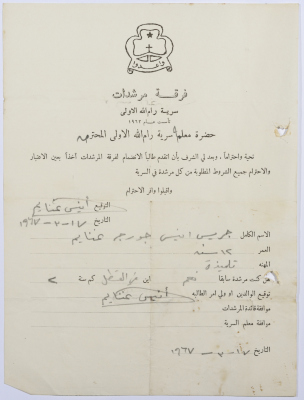 وأعدوا
فرقة مرشدات
سرية رام الله الاولى
تأسست عام ١٩٦٢
حضرة معلم سرية رام الله الاولى المحترمين
تحية واحتراماً، وبعد لي الشرف بأن اتقدم طالباً الانضمام لفرقة المرشدات آخذاً بعين الاعتبار
والاحترام جميع الشروط المطلوبة من كل مرشدة في السرية
واقبلوا وافر الاحترام
التوقيع
التاريخ ١٧-٢-١٩٦٧
الاسم الكامل جورج هنايم
العمر ١٢ سنة
المهنة تلميذة
هل كنت مرشدة سابقا نعم اين كم سنة ٢
توقيع الوالدين او ولي امر الطالبه
موافقة قائدة المرشدات
موافقة معلم السرية
التاريخ ١٧-٢-١٩٦٧